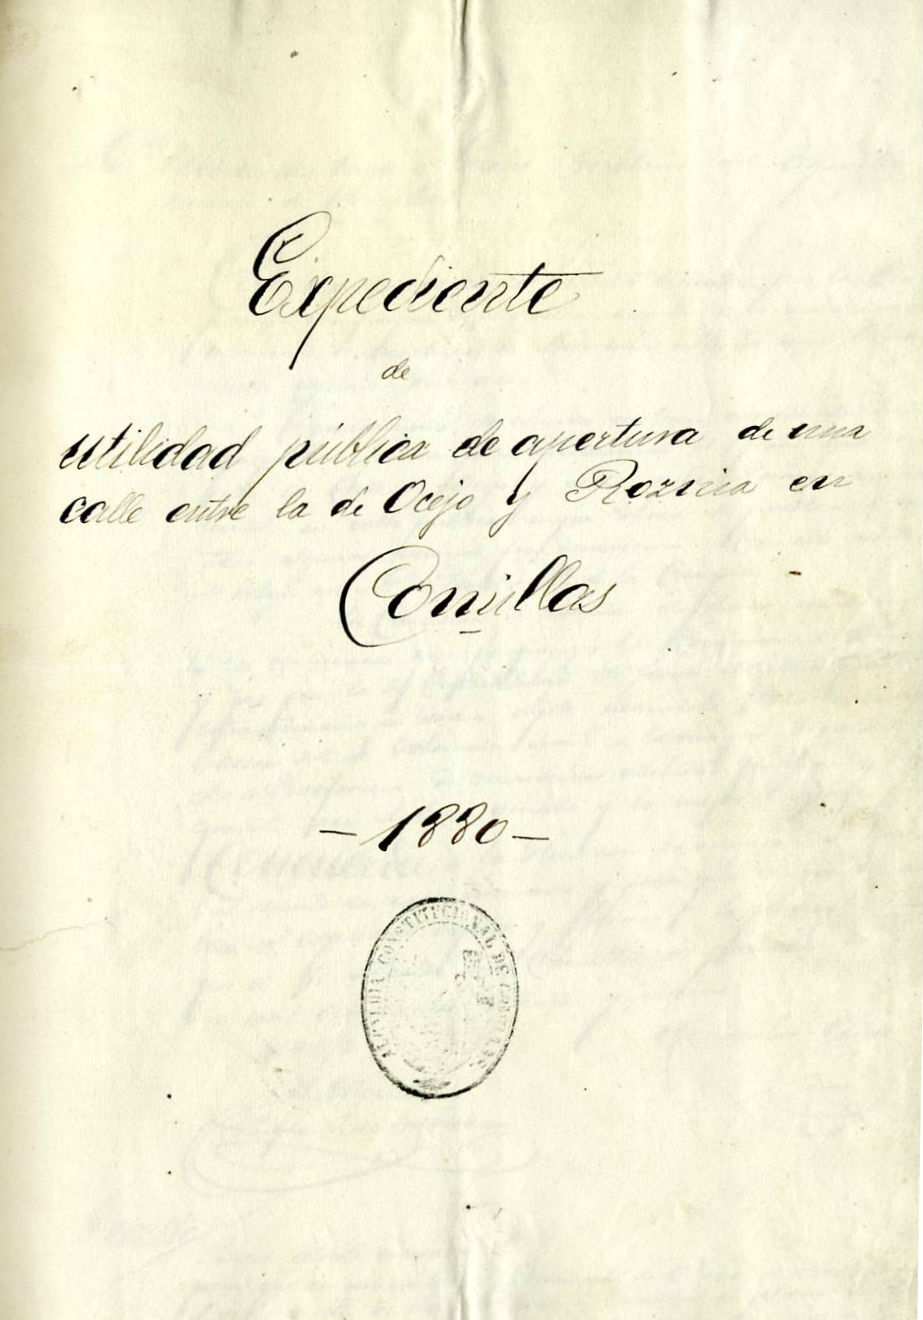 Expediente
de
utilidad pública de apertura de una
calle entre la de Ocejo y Roznia en
Comillas
— 1880 —
ALCALDIA CONSTITUCIONAL DE COMILLAS